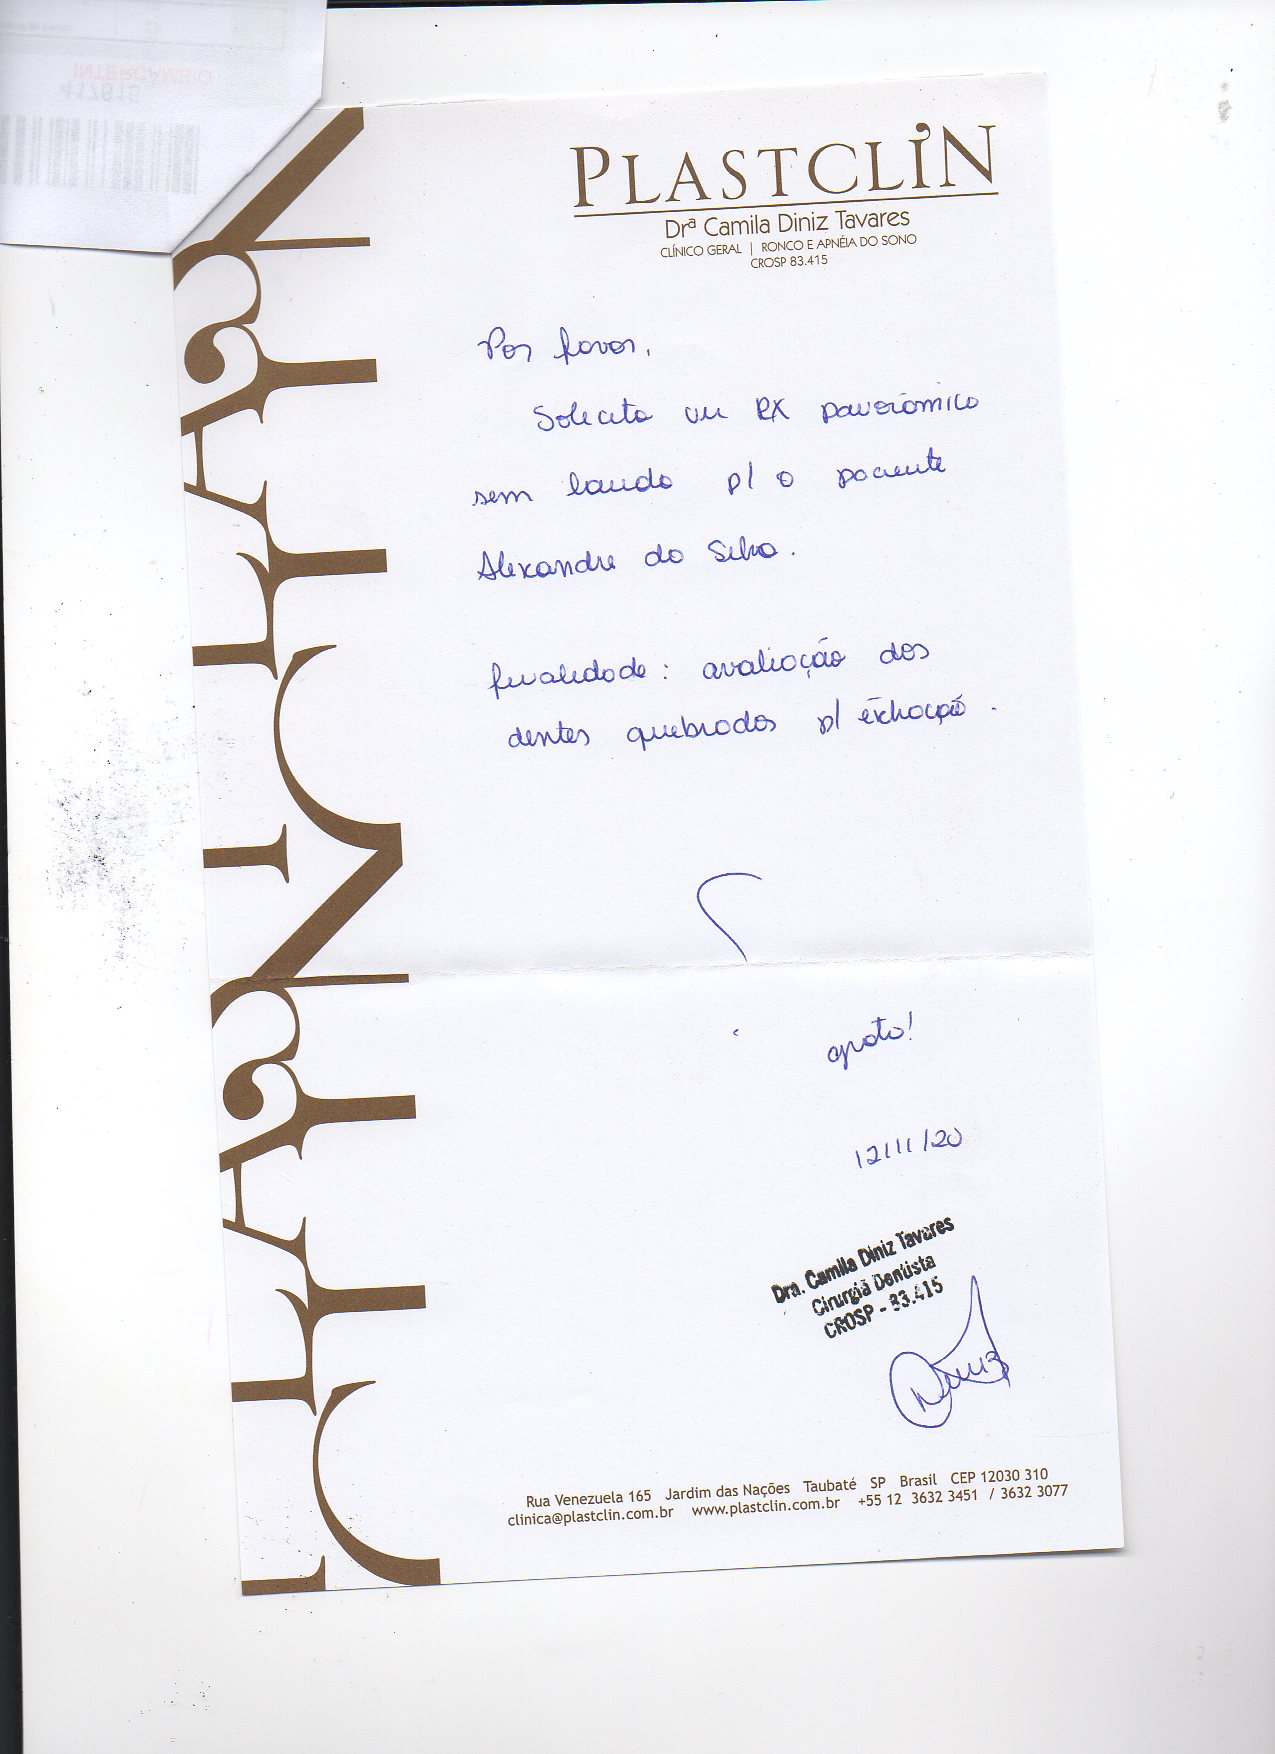 INTERCÂMBIO
PLASTCLIN
Drª Camila Diniz Tavares
CLÍNICO GERAL | RONCO E APNÉIA DO SONO
CROSP 83.415
Por favor,
Solicito um RX panorâmico
sem laudo p/ o paciente
Alexandre da Silva.
finalidade: avaliação dos
dentes quebrados p/ extração.
grato!
12/11/20
Dra. Camila Diniz Tavares
Cirurgiã Dentista
CROSP - 83.415
Diniz
Rua Venezuela 165 Jardim das Nações Taubaté SP Brasil CEP 12030 310
clinica@plastclin.com.br www.plastclin.com.br +55 12 3632 3451 / 3632 3077